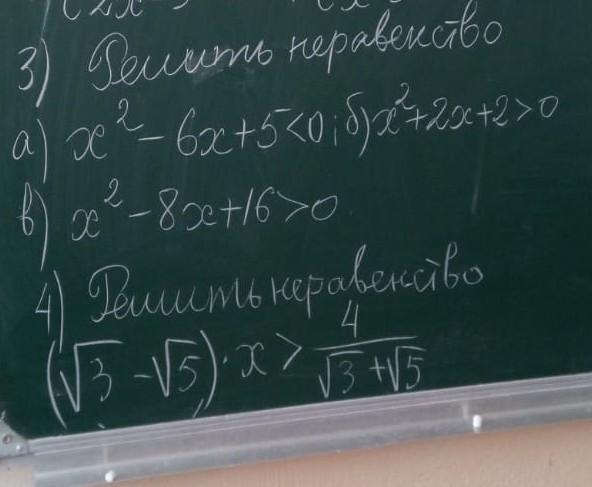 3) Решить неравенство
а) x² - 6x + 5 < 0; б) x² + 2x + 2 > 0
в) x² - 8x + 16 > 0
4) Решить неравенство
(√3 - √5) · x > 4/(√3 + √5)